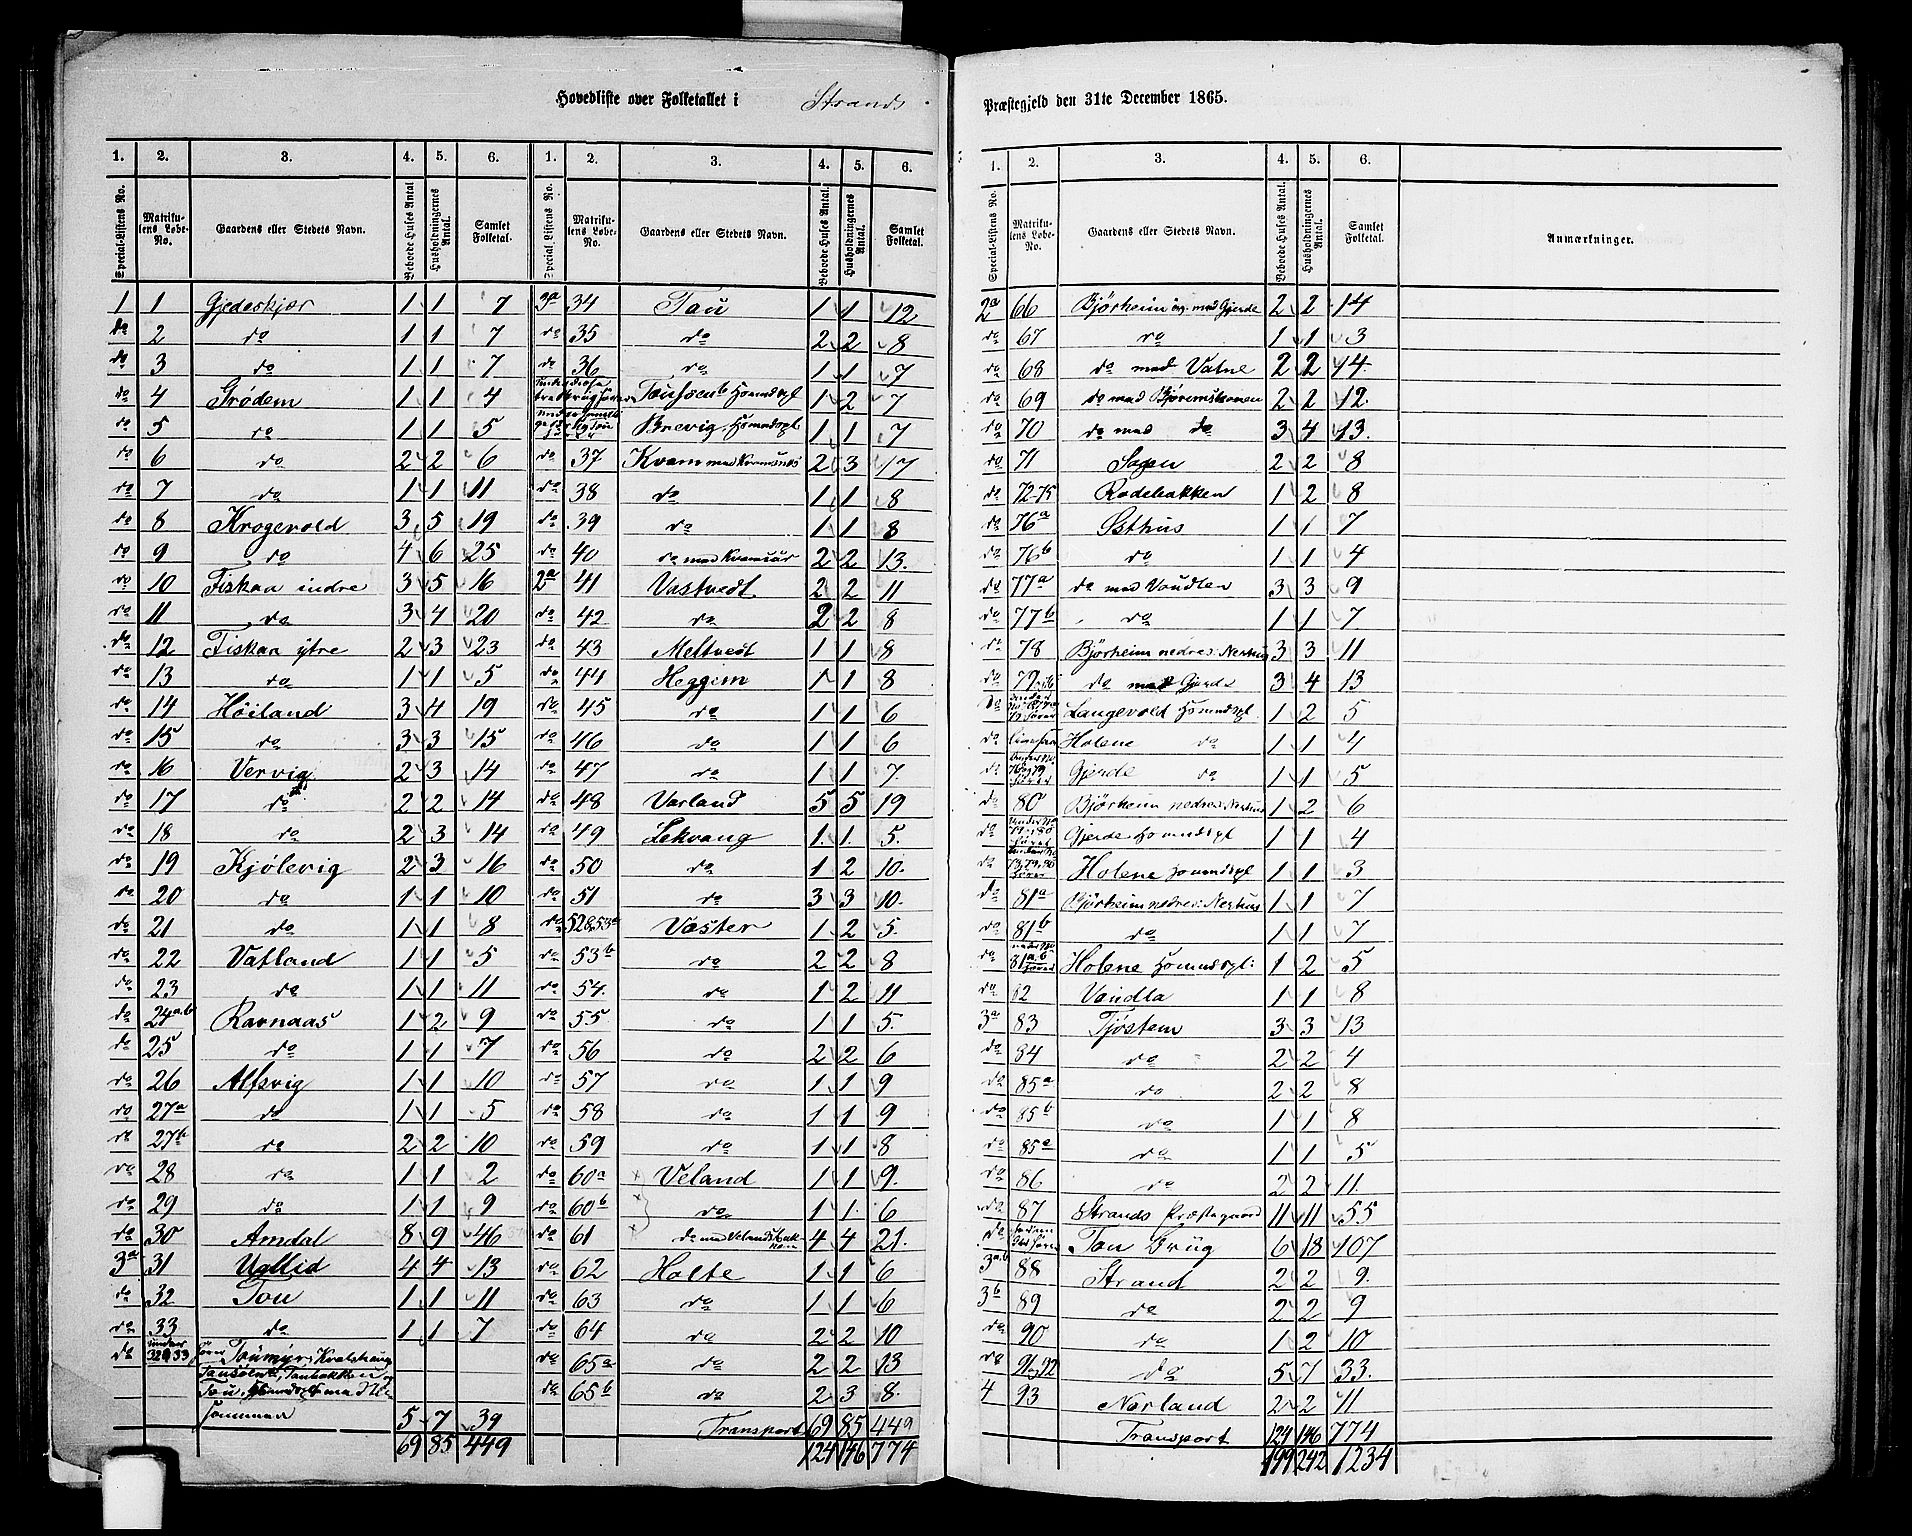 Hovedliste over Folketallet i Strands
Præstegjeld den 31te December 1865.
1. 2. 3. 4. 5. 6. 1. 2. 3. 4. 5. 6.
Special-Listens No. Matrikulens Løbe-No. Gaardens eller Stedets Navn. Beboede Huses Antal Husholdningernes Antal. Samlet Folketal. Special-Listens No. Matrikulens Løbe-No. Gaardens eller Stedets Navn. Beboede Huses Antal. Husholdningernes Antal. Samlet Folketal.
1 1 Gjedeskjær 1 1 7
do 2 do 1 1 7
do 3 do 1 1 7
do 4 Grødem 1 1 4
do 5 do 1 1 5
do 6 do 2 2 6
do 7 do 1 1 11
do 8 Krogevold 3 5 19
do 9 do 4 6 25
do 10 Fiskaa indre 3 5 16
do 11 do 3 4 20
do 12 Fiskaa ytre 2 3 23
do 13 do 1 1 5
do 14 Høiland 3 4 19
do 15 do 3 3 15
do 16 Vervig 2 3 14
do 17 do 2 2 14
do 18 do 2 3 14
do 19 Kjølevig 2 3 16
do 20 do 1 1 10
do 21 do 1 1 8
do 22 Vatland 1 1 5
do 23 do 1 1 11
do 24a.b Ravnaas 1 2 9
do 25 do 1 1 7
do 26 Alfsvig 1 1 10
do 27a do 1 1 5
do 27b do 2 2 10
do 28 do 1 1 2
do 29 do 1 1 9
do 30 Amdal 8 9 46
3a 31 Ullid 4 4 13
do 32 Tou 1 1 11
do 33 do 1 1 7
do under 32 & 33
Toumyr, Kvalshaug
Tou, Huusmdspl
sammen 5 7 39
69 85 449
3a 34 Tou 1 1 12
do 35 do 2 2 8
do 36 do 1 1 7
Housmdspl 1 2 7
Brevig Housmdspl 1 1 7
do 37 Kvam med Kvamsnæs 2 3 17
do 38 do 1 1 8
do 39 do 1 1 8
do 40 do med Kvamsur 2 2 13.
2a 41 Vastvedt 2 2 11
do 42 do 2 2 8
do 43 Meltvedt 1 1 8
do 44 Heggem 1 1 8
do 45 do 1 1 6
do 46 do 1 1 6
do 47 do 1 1 7.
do 48 Varland 5 5 19
do 49 Lekvang 1. 1. 5.
do 50 do 1 2 10.
do 51 do 3 3 10.
do 52&53a Vøster 1 2 5.
do 53b do 2 2 8
do 54. do 1 2 11
do 55 do 1 1 5.
do 56 do 2 2 6
do 57 do 1 1 9
do 58 do 1 1 9
do 59 do 1 1 8
do 60a Veland 1 1 9.
do 60b do 1 1. 6
do 61 do med Velandsbakken 4 4 21.
do 62 Holte 1 1 6
do 63 do 1 1 6
do 64 do 2 2 10
do 65a do 2 2 13
do 65b do 2 3 8.
Transport 69 85 449
124 146 774
1. 2. 3. 4. 5. 6.
Special-Listens No. Matrikulens Løbe-No. Gaardens eller Stedets Navn. Beboede Huses Antal. Husholdningernes Antal. Samlet Folketal. Anmærkninger.
2a 66 Bjørheim øv. med Gjerde 2 2 14
do 67 do 1 1 3
do 68 do med Vatne 2 2 14.
do 69 do med Bjøremskonen 2 2 12.
do 70 do med do 3 4 13.
do 71 Sagen 2 2 8
do 72-75 Rødebakken 1 2 8
do 76a Østhus 1 1 7
do 76b do 1 1 4
do 77a do med Vaudlen 3 3 9
do 77b do 1 1 7
do 78 Bjørheim nedre: Nerhus 3 3 11
do 79 do med Gjerde 3 4 13
do Langevold Housmdspl 1 2 5
do Holene do 1 1 4
do Gjerde do 1 1 5
do 80 Bjørheim nedre: Nerhus 1 2 6
do Gjerde Housmdspl 1 1 4
do Holene Housmdspl 1 1 3
do 81a Bjørheim nedre: Nerhus 1 1 7
do 81b do 1 1 7
do 81a.b Holene Housmdspl: 1 2 5
do 82 Vandla 1 1 8
3a 83 Tjøstem 3 3 13
do 84 do 2 2 4
do 85a do 2 2 8
do 85b do 1 1 8
do 85a do 1 1 5
do 86 do 2 2 11.
do 87 Strands Præstegaard 11 11 55
do Tou Brüg 6 18 107
3a.b 88 Strand 2 2 9.
3b 89 do 2 2 9
do 90 do 1 2 10
do 91 og 92 do 5 7 33.
4 93 Norland 2 2 11
Transport 124 146 774
199 242 1234